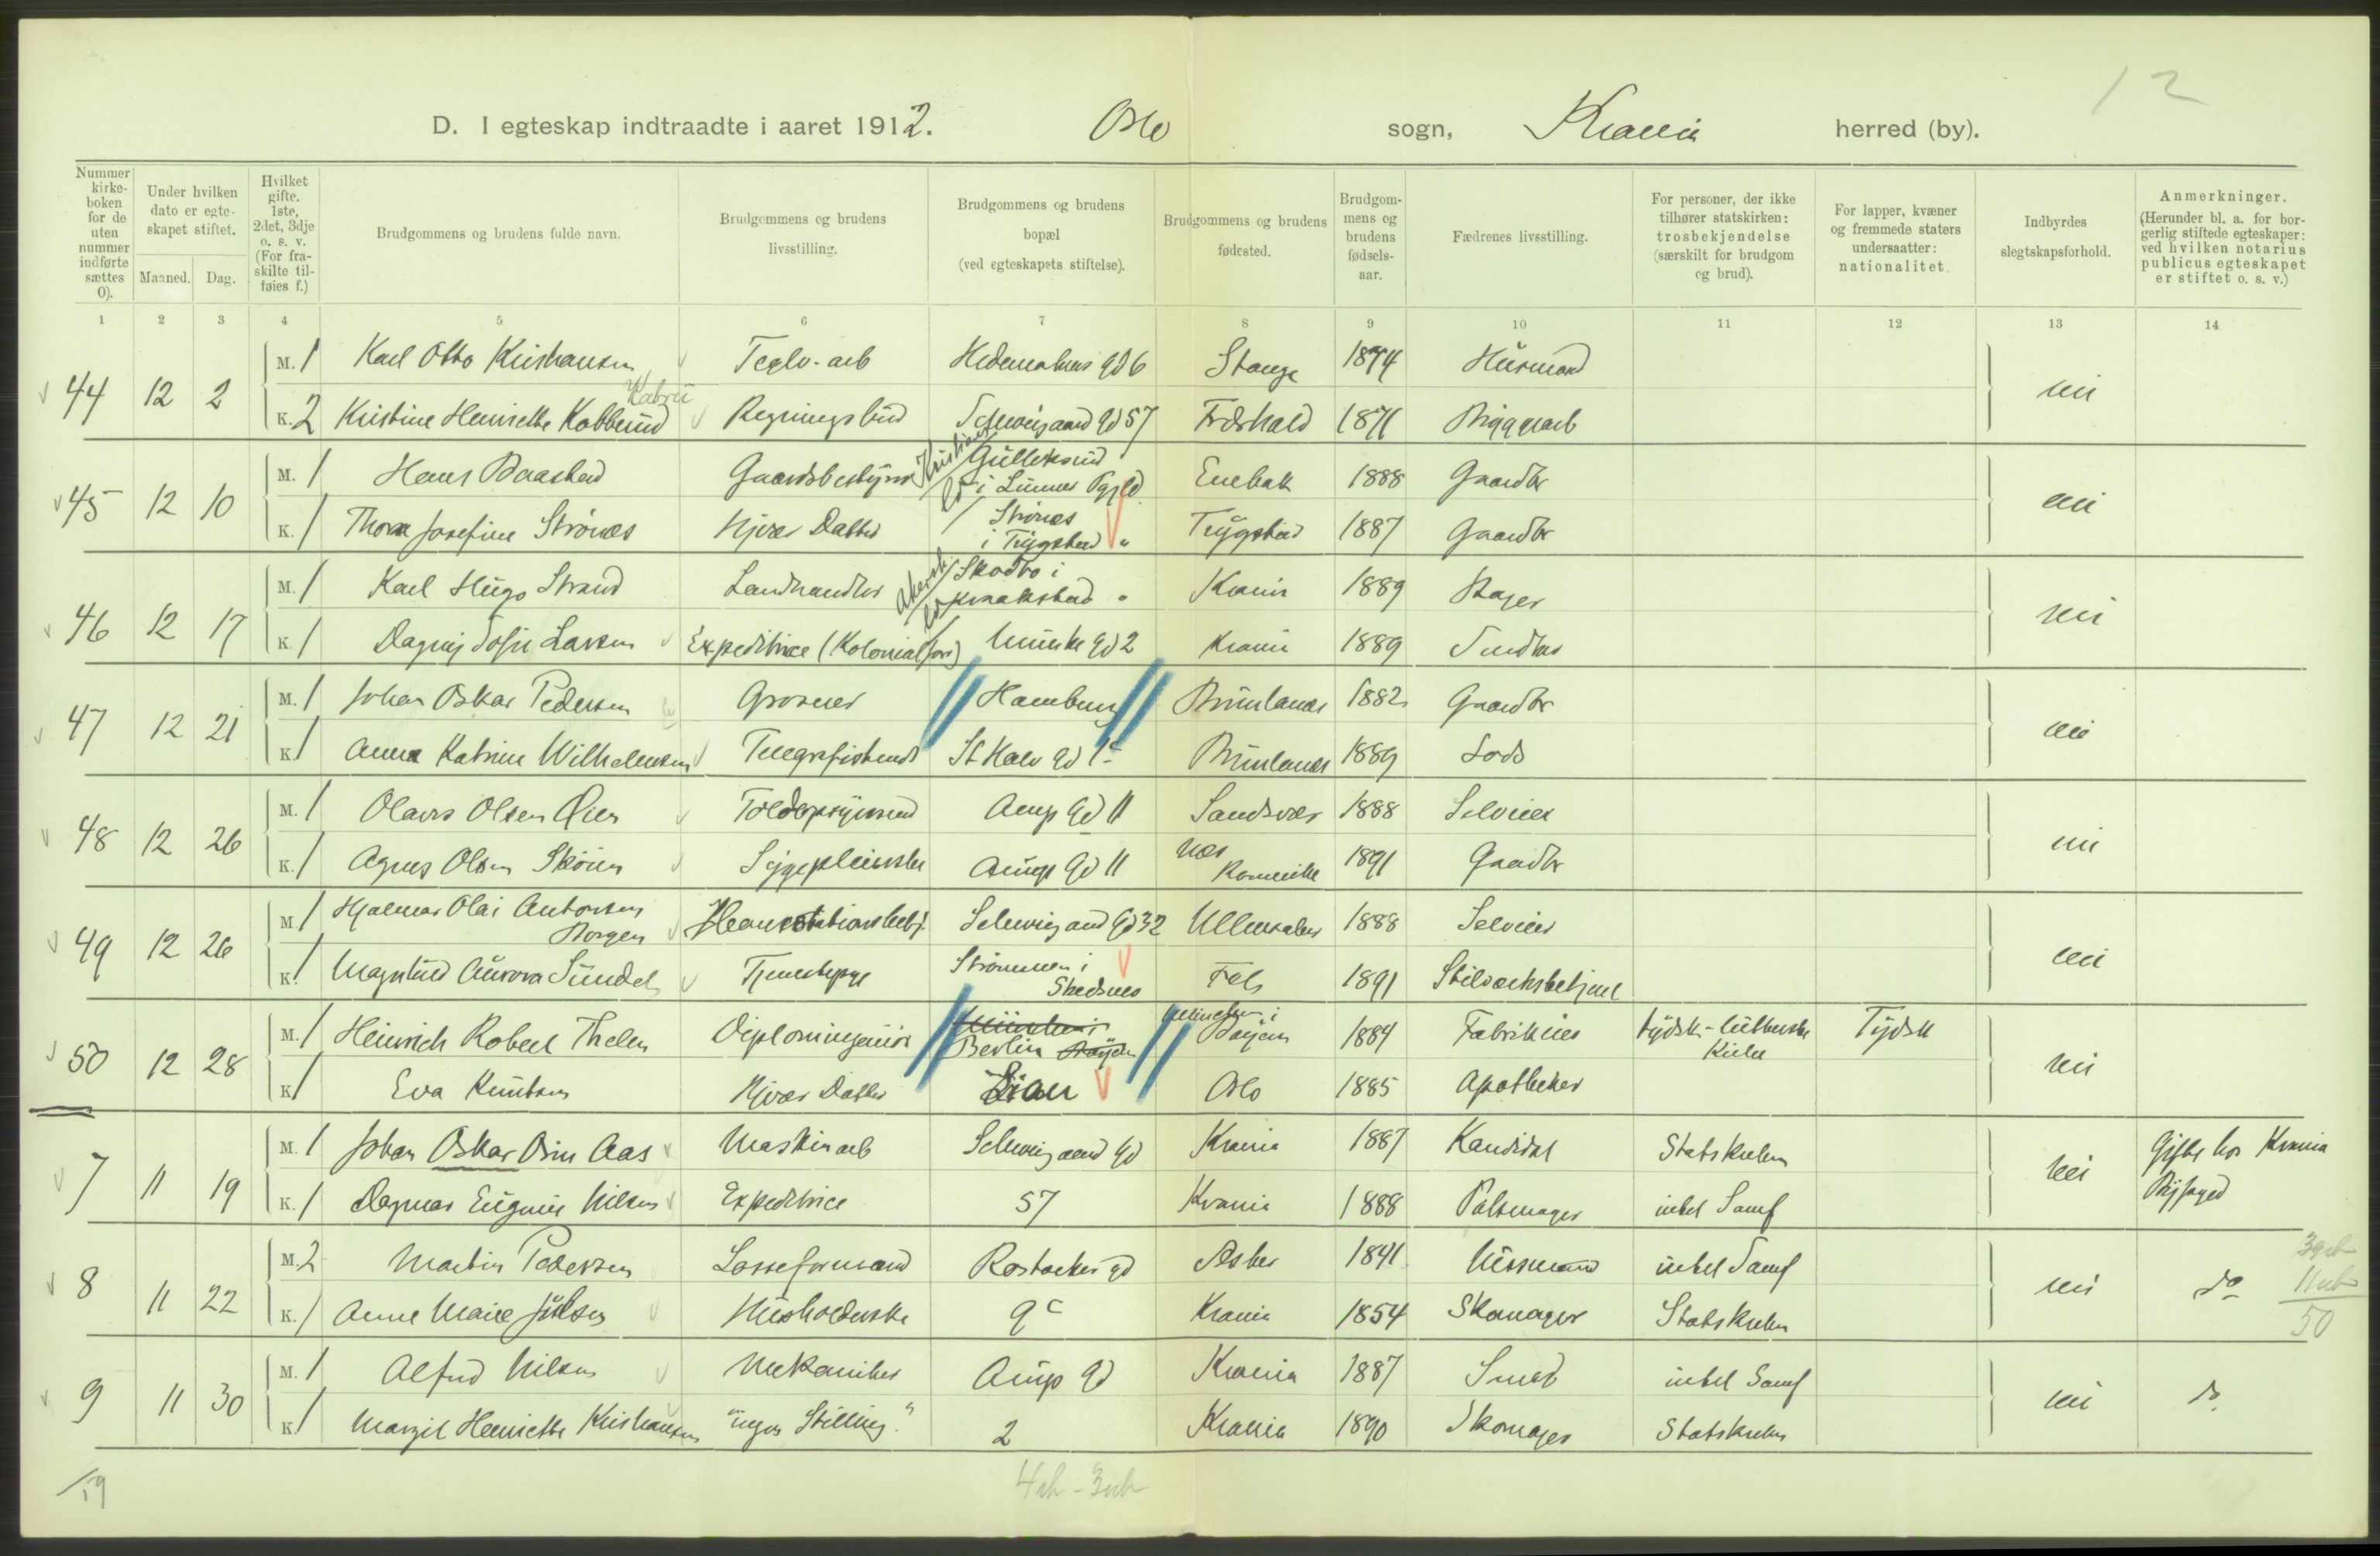 12
D. I egteskap indtraadte i aaret 1912. Oslo sogn, Krania herred (by).
Nummer kirkeboken for de uten nummer indførte sættes 0).
Under hvilken dato er egteskapet stiftet.
Maaned. Dag.
Hvilket gifte. 1ste, 2det, 3dje o. s. v. (For fraskilte tilføies f.)
Brudgommens og brudens fulde navn.
Brudgommens og brudens livsstilling.
Brudgommens og brudens bopæl (ved egteskapets stiftelse).
Brudgommens og brudens fødested.
Brudgommens og brudens fødselsaar.
Fædrenes livsstilling.
For personer, der ikke tilhører statskirken: trosbekjendelse (særskilt for brudgom og brud).
For lapper, kvæner og fremmede staters undersaatter: nationalitet.
Indbyrdes slegtskapsforhold.
Anmerkninger. (Herunder bl. a. for borgerlig stiftede egteskaper: ved hvilken notarius publicus egteskapet er stiftet o. s. v.)
1 2 3 4 5 6 7 8 9 10 11 12 13 14
44 12 2 M. 1 Karl Otto Kristiansen Teglv-arb Hedemarkens gd 6 Stange 1874 Husmand nei
K. 2 Kristine Henriette Kabberud Regningsbud Schweigaard gd 57 Fr.hald 1871 Bryggearb
45 12 10 M. 1 Hans Baastad Gaardsbestyrer Gulleksrud i Lunner Pgjld Enebak 1888 Gaardbr nei
K. 1 Thora Josefine Strønæs Hjvær Datter Strønæs i Trygstad " Trygstad 1887 Gaardbr
46 12 17 M. 1 Karl Hugo Strand Landhandler Skodbo i Kraakstad " Krania 1889 Bager nei
K. 1 Dagny Sofie Larsen Expeditrice (Kolonialforr) Munke gd 2 Krania 1889 Snedker
47 12 21 M. 1 Johan Oskar Pedersen Grosserer Hamburg Brunlanæs 1882 Gaardbr nei
K. 1 Anna Katrine Wilhelmsen Telegrafistinde St Halv gd 1c Brunlanæs 1889 Lods
48 12 26 M. 1 Olavs Olsen Øien Toldopsynsmd Arup gd 11 Sandsvær 1888 Selveier nei
K. 1 Agnes Olsen Skøien Sygepleierske Arups gd 11 Næs Romerike 1891 Gaardbr
49 12 26 M. 1 Hjalmar Olai Antonsen Borgen Schweigaard gd 32 Ullensaker 1888 Selveier nei
K. 1 Magnhild Aurora Sundel Tjenestepige Strømmen i Skedsmo Fets 1891
50 12 28 M. 1 Heinrich Robert Thelen Diplomingeniør München i Berlin Bayern München i Bayern 1884 Fabrikeier tydsk-lutherske Kirke Tydsk nei
K. 1 Eva Knutsen Hjvær Datter Lian Oslo 1885 Apotheker
7 11 19 M. 1 Johan Oskar Osin Aas Maskinarb Schweigaard gd Krania 1887 Kandidat Statskirken nei Gifte hos Krania Byfoged
K. 1 Dagmar Eugenie Nilsen Expeditrice 57 Krania 1888 Pølsemager utel Samf
8 11 22 M. 2 Martin Pedersen Losseformand Rostocker gd Asker 1841 Husmand utel Samf nei do
K. 1 Anne Marie Julsen Husholderske 9c Krania 1854 Skomager Statskirken
50
9 11 30 M. 1 Alfred Nilsen Mekaniker Arup gd Krania 1887 Smed utel Samf nei do
K. 1 Margit Henriette Kristiansen "ingen Stilling" 2 Krania 1890 Skomager Statskirken
19